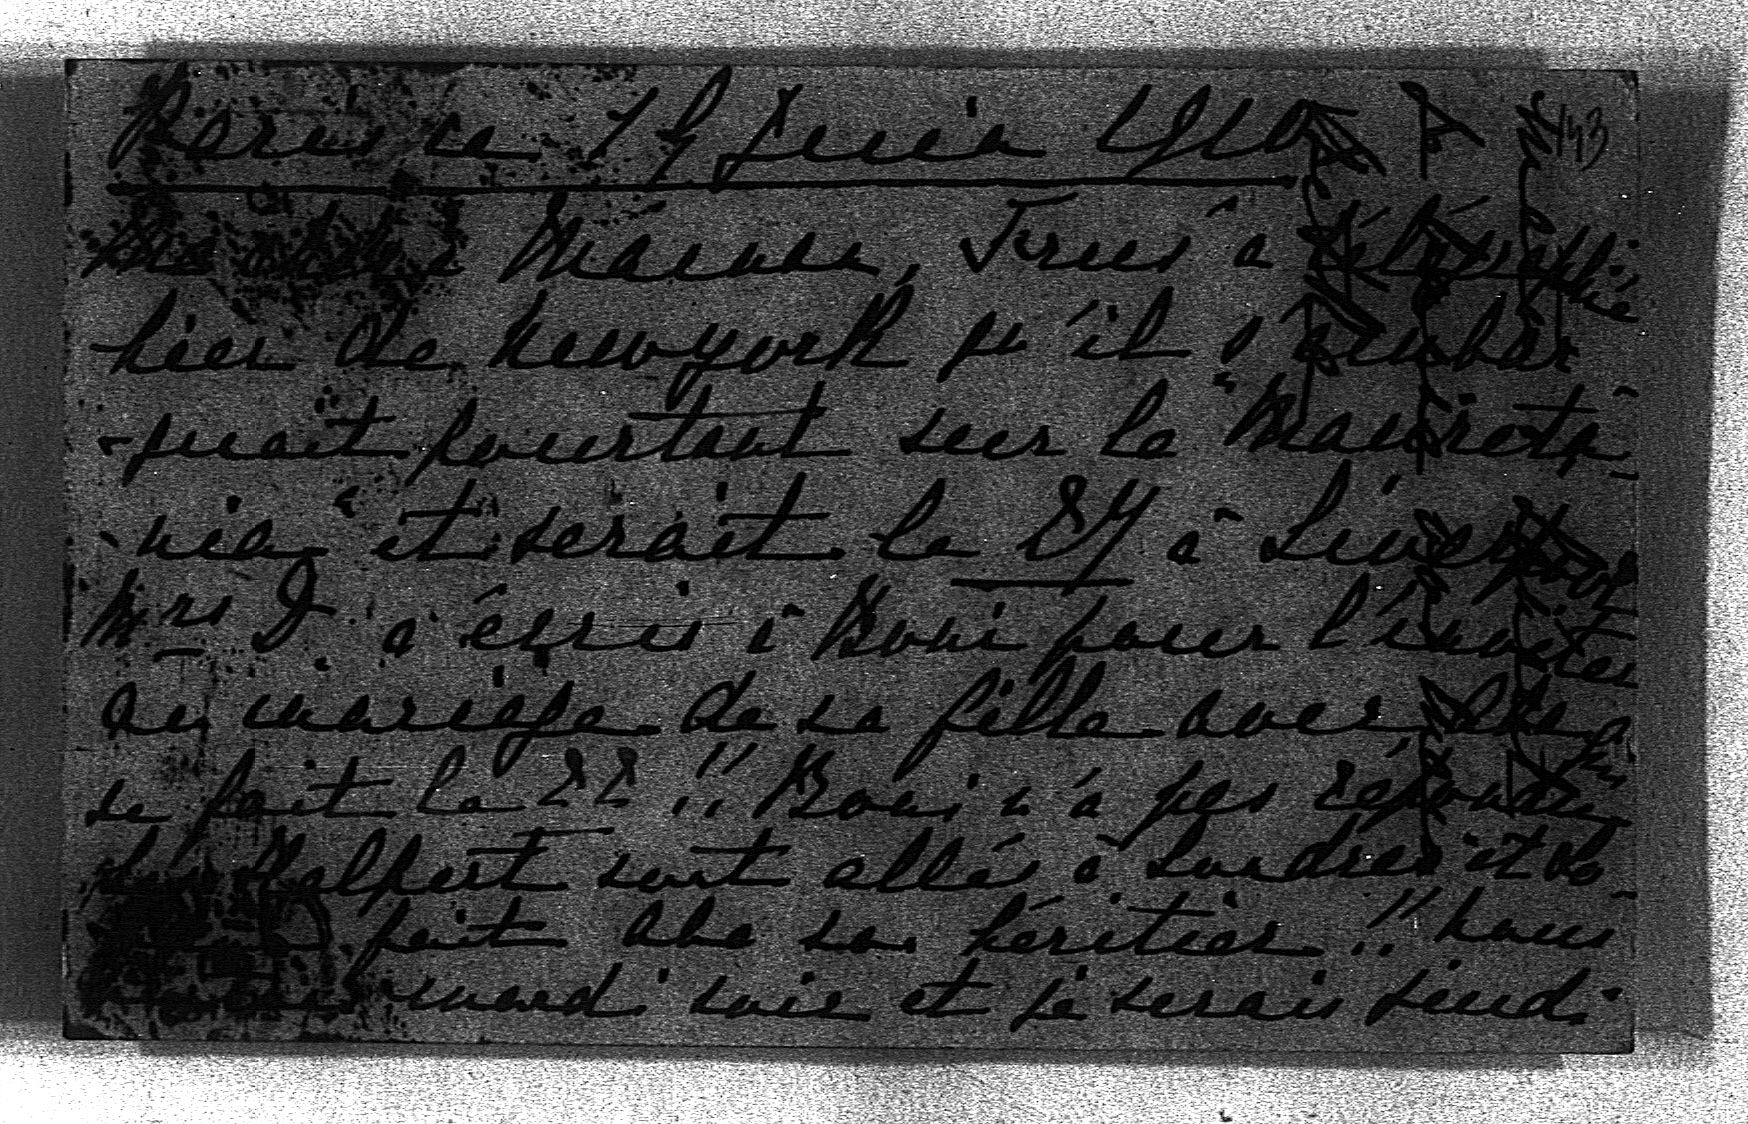 Paris ce 19 Juin 1910
143
Ma chère Maman, Frees a télégraphié
hier de Newyork qu'il s'embar
-quait pourtant sur le "Maureta-
-nia" et serait le 27 à Liverpool
Mrs D. a écrit à Boni pour l'inviter
au mariage de sa fille avec
se fait le 22!! Boni n'a pas répondu
Les sont allés à Londres et
fait de sa héritier!! nous
mardi soir et je serais lundi